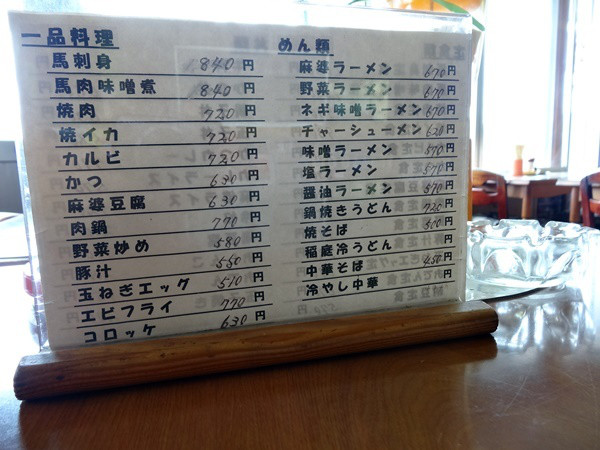 一品料理
馬刺身 840円
馬肉味噌煮 840円
焼肉 720円
焼イカ 720円
カルビ 720円
かつ 630円
麻婆豆腐 630円
肉鍋 770円
野菜炒め 580円
豚汁 550円
玉ねぎエッグ 510円
エビフライ 770円
コロッケ 630円
めん類
麻婆ラーメン 670円
野菜ラーメン 670円
ネギ味噌ラーメン 670円
チャーシューメン 620円
味噌ラーメン 570円
塩ラーメン 570円
醤油ラーメン 570円
鍋焼きうどん 720円
焼そば 510円
稲庭冷うどん 円
中華そば 450円
冷やし中華 円